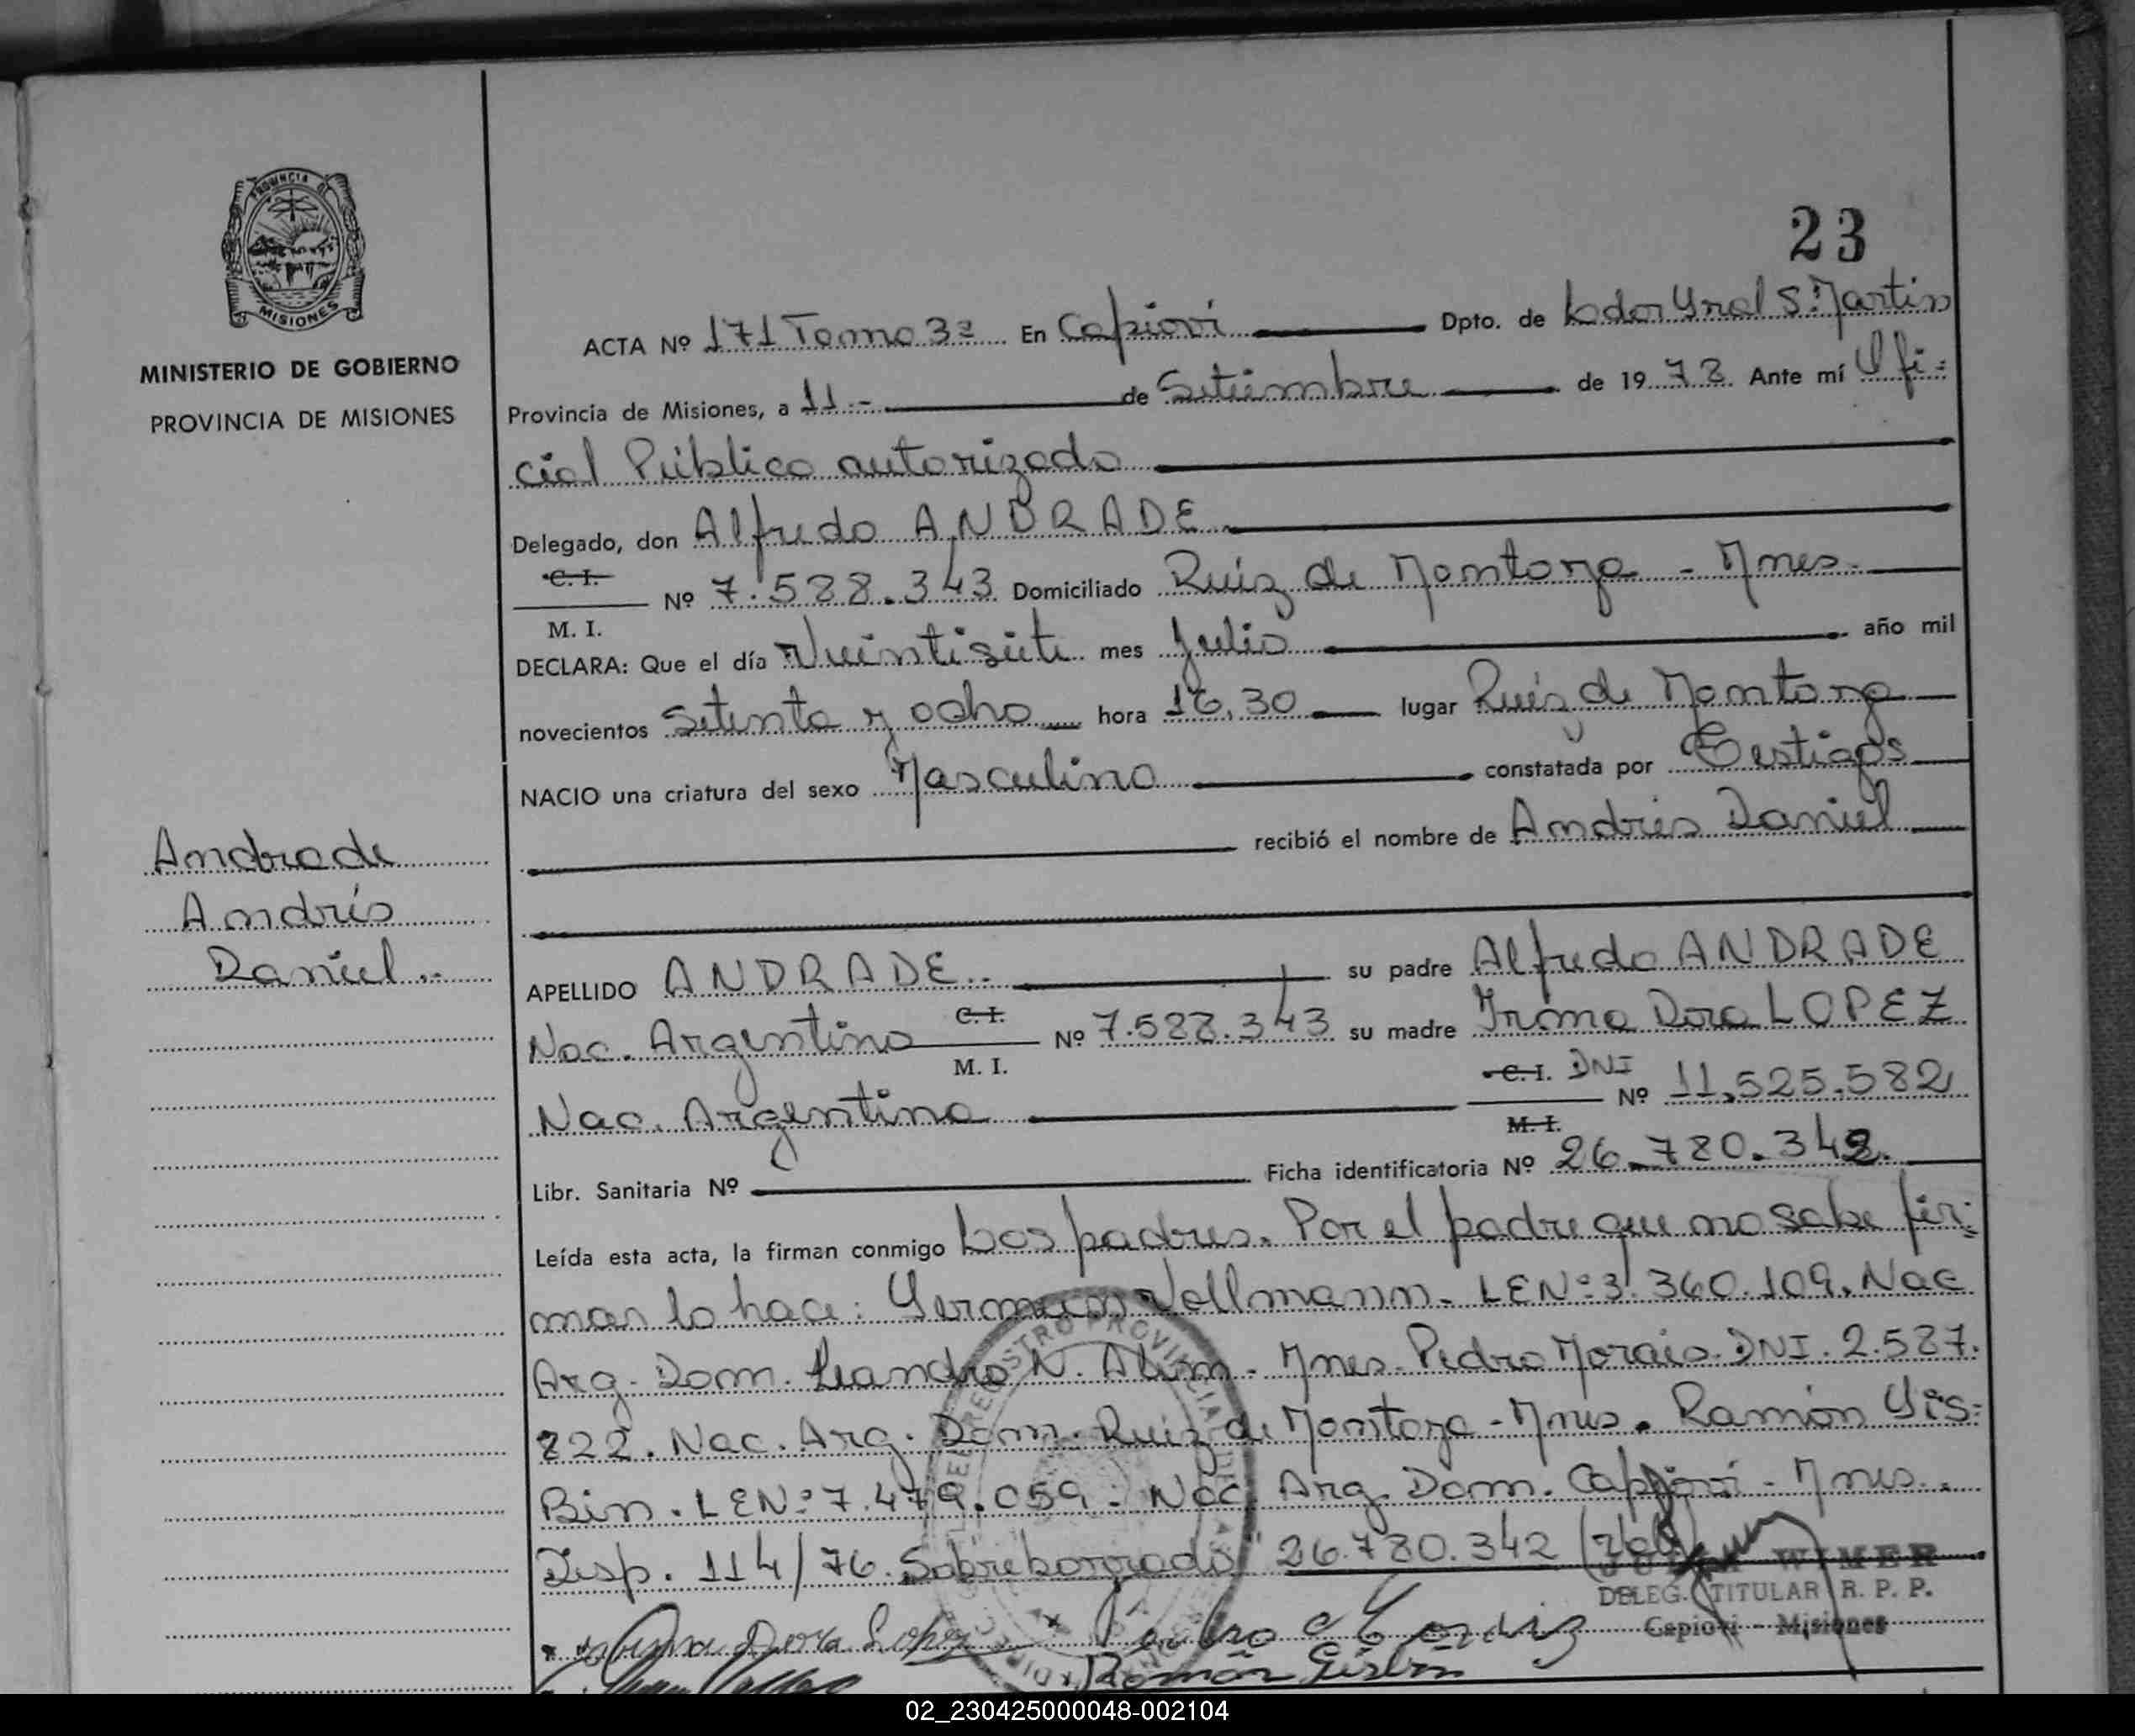 PROVINCIA DE
MISIONES
MINISTERIO DE GOBIERNO
PROVINCIA DE MISIONES
Andrade
Andrés
Daniel.-
23
ACTA Nº 171 Tomo 3º En Capioví Dpto. de Lodor Gral S. Martin
Provincia de Misiones, a 11.- de Setiembre de 1978. Ante mí Ofi-
cial Público autorizado
Delegado, don Alfredo ANDRADE
C. I.
M. I.
Nº 7.588.343 Domiciliado Ruíz de Montoya - Mnes.
DECLARA: Que el día Veintisiete mes Julio año mil
novecientos Setenta y ocho hora 16,30 lugar Ruíz de Montoya
NACIO una criatura del sexo Masculino constatada por Testigos
recibió el nombre de Andrés Daniel
APELLIDO ANDRADE.- su padre Alfredo ANDRADE
Nac. Argentina C. I. M. I. Nº 7.588.343 su madre Irma Dora LOPEZ
Nac. Argentina C. I. DNI M. I. Nº 11.525.582
Libr. Sanitaria Nº Ficha identificatoria Nº 26.780.342.
Leída esta acta, la firman conmigo Los padres. Por el padre que no sabe fir-
mar lo hace: German Vollmann. LENº 3.360.109. Nac
Arg. Dom. Leandro N. Alem - Mnes. Pedro Morais. DNI. 2.587.
822. Nac. Arg. Dom. Ruiz de Montoya - Mnes. Ramón Gis-
Bin. LENº 7.479.059. Nac. Arg. Dom. Capioví - Mnes..
Disp. 114/76. Sobreborrado "26.780.342
WIMER
DELEG. TITULAR R. P. P.
Capiovi - Misiones
Irma Dora Lopez Pedro Moraiz
Román Gisbin
02_230425000048-002104